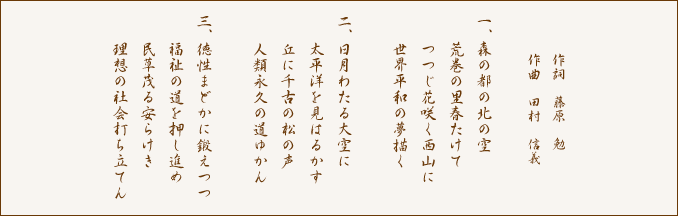 作詞　藤原　勉
作曲　田村　信義
一、森の都の北の空
荒巻の里春たけて
つつじ花咲く西山に
世界平和の夢描く
二、日月わたる大空に
太平洋を見はるかす
丘に千古の松の声
人類永久の道ゆかん
三、徳性まどかに鍛えつつ
福祉の道を押し進め
民草茂る安らけき
理想の社会打ち立てん